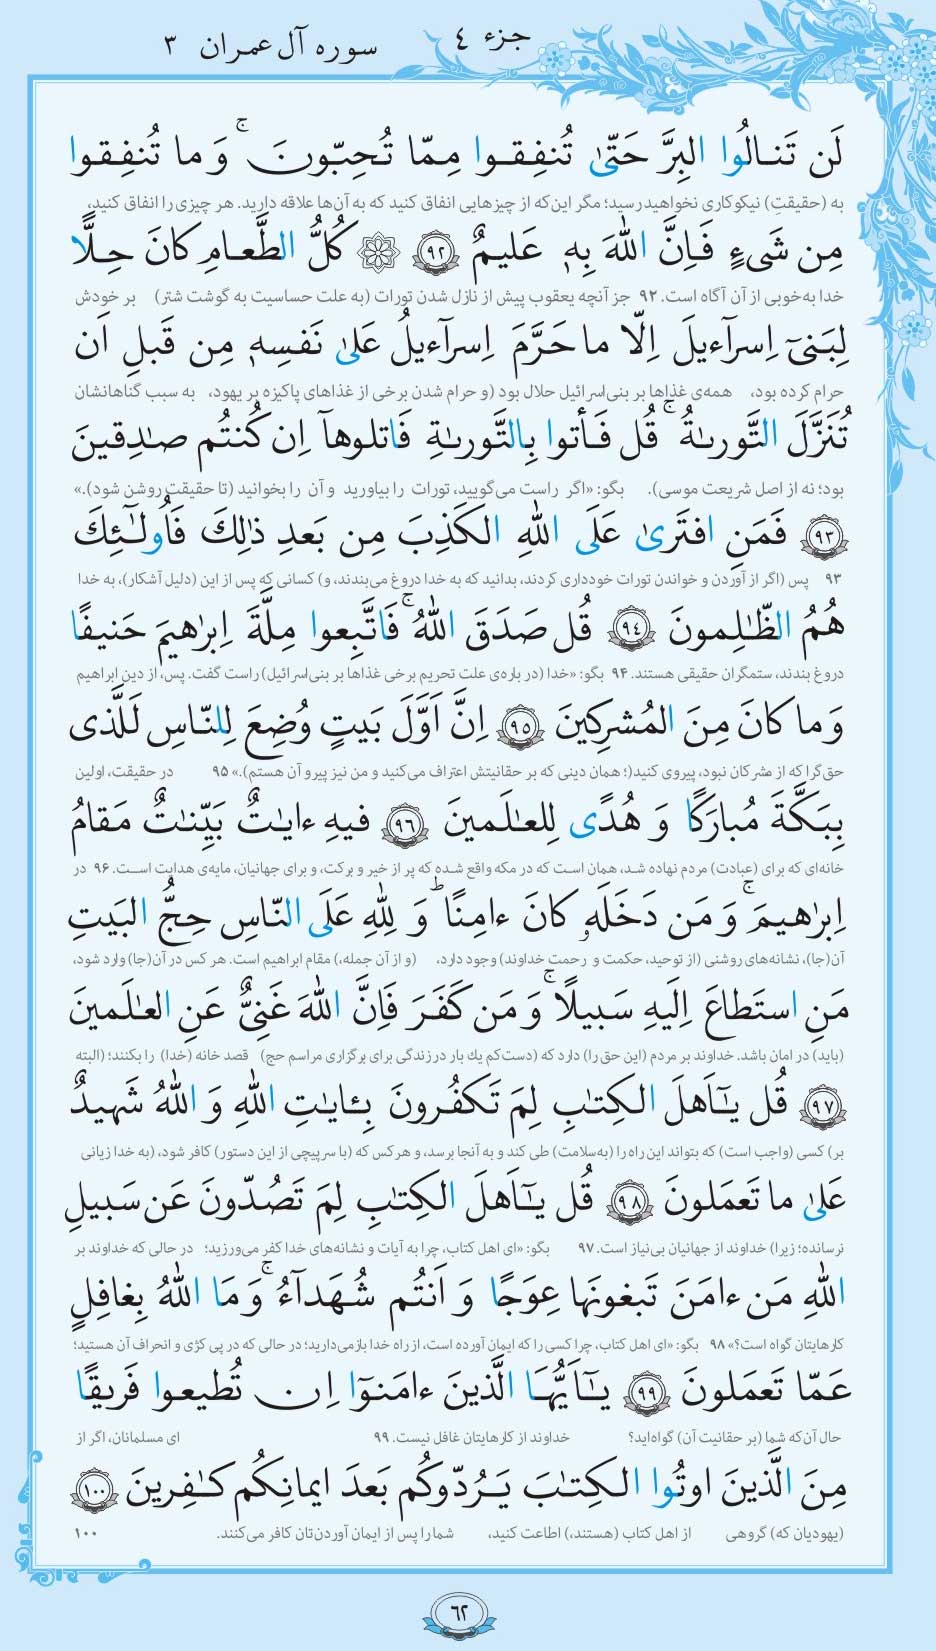 جزء ٤
سوره آل عمران ٣
لَن تَنالُوا البِرَّ حَتّىٰ تُنفِقوا مِمّا تُحِبّونَ ۚ وَ ما تُنفِقوا
به (حقیقتِ) نیکوکاری نخواهید رسید؛ مگر این‌که از چیزهایی انفاق کنید که به آن‌ها علاقه دارید. هر چیزی را انفاق کنید،
مِن شَىءٍ فَاِنَّ اللّٰهَ بِهٖ عَليمٌ ﴿٩٢﴾ ۞ كُلُّ الطَّعامِ كانَ حِلًّا
خدا به‌خوبی از آن آگاه است. ۹۲ جز آنچه یعقوب پیش از نازل شدن تورات (به علت حساسیت به گوشت شتر) بر خودش
لِبَنىٓ اِسرآءيلَ اِلّا ما حَرَّمَ اِسرآءيلُ عَلىٰ نَفسِهٖ مِن قَبلِ اَن
حرام کرده بود، همه‌ی غذاها بر بنی‌اسرائیل حلال بود (و حرام شدن برخی از غذاهای پاکیزه بر یهود، به سبب گناهانشان
تُنَزَّلَ التَّورىٰةُ ۚ قُل فَأتوا بِالتَّورىٰةِ فَاتلوهآ اِن كُنتُم صـٰدِقينَ
بود؛ نه از اصل شریعت موسی). بگو: «اگر راست می‌گویید، تورات را بیاورید و آن را بخوانید (تا حقیقت روشن شود).»
﴿٩٣﴾ فَمَنِ افتَرىٰ عَلَى اللّٰهِ الكَذِبَ مِن بَعدِ ذٰلِكَ فَاُولـٰٓئِكَ
۹۳ پس (اگر از آوردن و خواندن تورات خودداری کردند، بدانید که به خدا دروغ می‌بندند، و) کسانی که پس از این (دلیل آشکار)، به خدا
هُمُ الظّـٰلِمونَ ﴿٩٤﴾ قُل صَدَقَ اللّٰهُ ۚ فَاتَّبِعوا مِلَّةَ اِبرٰهيمَ حَنيفًا
دروغ بندند، ستمگران حقیقی هستند. ۹۴ بگو: «خدا (در باره‌ی علت تحریم برخی غذاها بر بنی‌اسرائیل) راست گفت. پس، از دین ابراهیم
وَ ما كانَ مِنَ المُشرِكينَ ﴿٩٥﴾ اِنَّ اَوَّلَ بَيتٍ وُضِعَ لِلنّاسِ لَلَّذى
حق‌گرا که از مشرکان نبود، پیروی کنید(؛ همان دینی که بر حقانیتش اعتراف می‌کنید و من نیز پیرو آن هستم).» ۹۵ در حقیقت، اولین
بِبَكَّةَ مُبارَكًا وَ هُدًى لِلعـٰلَمينَ ﴿٩٦﴾ فيهِ ءايـٰتٌ بَيِّنـٰتٌ مَقامُ
خانه‌ای که برای (عبادت) مردم نهاده شد، همان است که در مکه واقع شده که پر از خیر و برکت، و برای جهانیان، مایه‌ی هدایت است. ۹۶ در
اِبرٰهيمَ ۚ وَ مَن دَخَلَهٗ كانَ ءامِنًا ۗ وَ لِلّٰهِ عَلَى النّاسِ حِجُّ البَيتِ
آن(جا)، نشانه‌های روشنی (از توحید، حکمت و رحمت خداوند) وجود دارد، (و از آن جمله،) مقام ابراهیم است. هر کس در آن(جا) وارد شود،
مَنِ استَطاعَ اِلَيهِ سَبيلًا ۚ وَ مَن كَفَرَ فَاِنَّ اللّٰهَ غَنِىٌّ عَنِ العـٰلَمينَ
(باید) در امان باشد. خداوند بر مردم (این حق را) دارد که (دست‌کم یك بار در زندگی برای برگزاری مراسم حج) قصد خانه (خدا) را بکنند؛ (البته
﴿٩٧﴾ قُل يـٰٓاَهلَ الكِتـٰبِ لِمَ تَكفُرونَ بِـٔايـٰتِ اللّٰهِ وَ اللّٰهُ شَهيدٌ
بر) کسی (واجب است) که بتواند این راه را (به‌سلامت) طی کند و به آنجا برسد، و هر کس که (با سرپیچی از این دستور) کافر شود، (به خدا زیانی
عَلىٰ ما تَعمَلونَ ﴿٩٨﴾ قُل يـٰٓاَهلَ الكِتـٰبِ لِمَ تَصُدّونَ عَن سَبيلِ
نرسانده؛ زیرا) خداوند از جهانیان بی‌نیاز است. ۹۷ بگو: «ای اهل کتاب، چرا به آیات و نشانه‌های خدا کفر می‌ورزید؛ در حالی که خداوند بر
اللّٰهِ مَن ءامَنَ تَبغونَها عِوَجًا وَ اَنتُم شُهَدآءُ ۚ وَ مَا اللّٰهُ بِغافِلٍ
کارهایتان گواه است؟» ۹۸ بگو: «ای اهل کتاب، چرا کسی را که ایمان آورده است، از راه خدا بازمی‌دارید؛ در حالی که در پی کژی و انحراف آن هستید؛
عَمّا تَعمَلونَ ﴿٩٩﴾ يـٰٓاَيُّهَا الَّذينَ ءامَنوٓا اِن تُطيعوا فَريقًا
حال آن‌که شما (بر حقانیت آن) گواه‌اید؟ خداوند از کارهایتان غافل نیست. ۹۹ ای مسلمانان، اگر از
مِنَ الَّذينَ اوتُوا الكِتـٰبَ يَرُدّوكُم بَعدَ ايمانِكُم كـٰفِرينَ ﴿١٠٠﴾
(یهودیان که) گروهی از اهل کتاب (هستند،) اطاعت کنید، شما را پس از ایمان آوردن‌تان کافر می‌کنند. ۱۰۰
٦٢